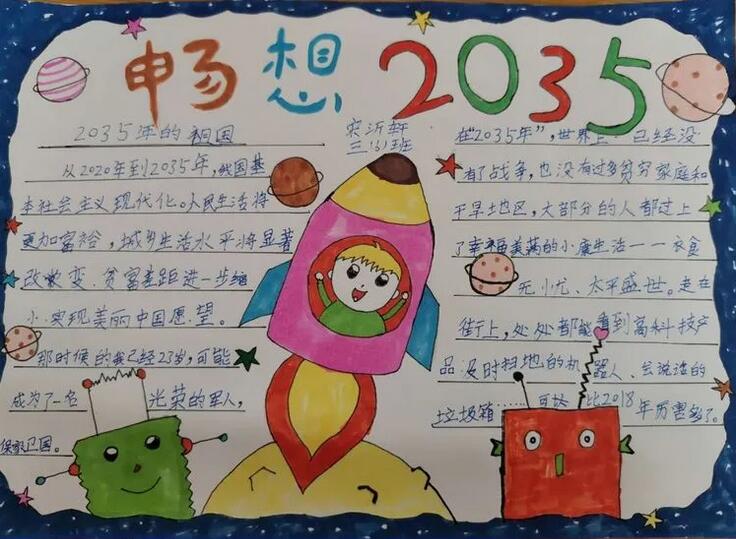 畅想2035
2035年的祖国
宋沂轩
三(3)班
从2020年到2035年,我国基
本社会主义现代化。人民生活将
更加富裕,城乡生活水平将显著
改变、贫富差距进一步缩
小.实现美丽中国愿望。
那时候的我已经23岁,可能
成为了一名光荣的军人,
保家卫国。
在“2035年”,世界上已经没
有了战争,也没有过多贫穷家庭和
干旱地区,大部分的人都过上
了幸福美满的小康生活——衣食
无小忧、太平盛世。走在
街上,处处都能看到高科技产
品及时扫地的机器人、会说话的
垃圾箱……可比2018年厉害多了。